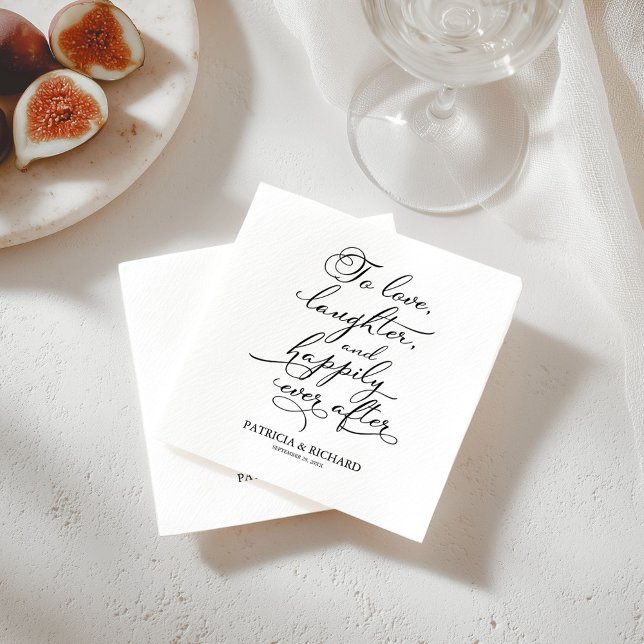 To love,
laughter,
and
happily
ever after
PATRICIA & RICHARD
SEPTEMBER 29, 20XX
PA